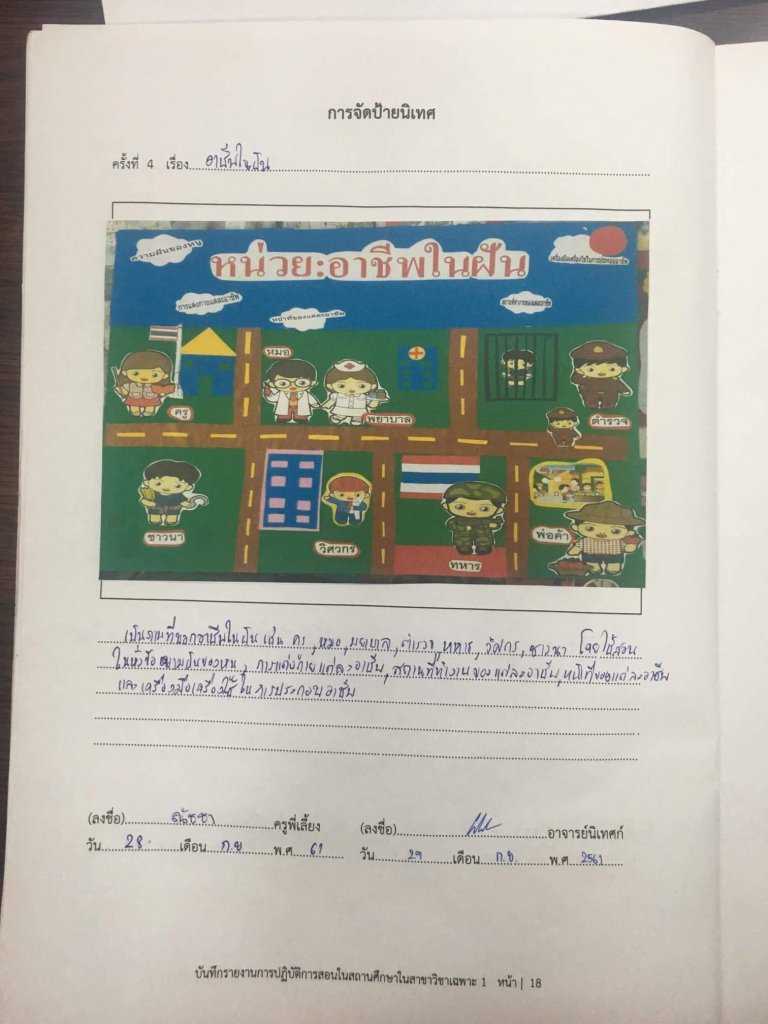 การจัดป้ายนิเทศ
ครั้งที่ 4 เรื่อง อาชีพในฝัน
ความฝันของหนู
หน่วย:อาชีพในฝัน
เครื่องมือเครื่องใช้ในการประกอบอาชีพ
การแต่งกายแต่ละอาชีพ
หน้าที่ของแต่ละอาชีพ
สถานที่ทำงานของแต่ละอาชีพ
หมอ
ครู
พยาบาล
ตำรวจ
ชาวนา
วิศวกร
ทหาร
พ่อค้า
เป็นภาพที่บอกอาชีพในฝัน เช่น ครู, หมอ, พยาบาล, ตำรวจ, ทหาร, วิศวกร, ชาวนา โดยใช้สอน
ในหัวข้อ ความฝันของหนู, การแต่งกายแต่ละอาชีพ, สถานที่ทำงานของแต่ละอาชีพ, หน้าที่ของแต่ละอาชีพ
และเครื่องมือเครื่องใช้ในการประกอบอาชีพ
(ลงชื่อ) ณัชชา ครูพี่เลี้ยง (ลงชื่อ) อาจารย์นิเทศก์
วัน 28 เดือน ก.ย พ.ศ 61 วัน 29 เดือน ก.ย. พ.ศ 2561
บันทึกรายงานการปฏิบัติการสอนในสถานศึกษาในสาขาวิชาเฉพาะ 1 หน้า | 18